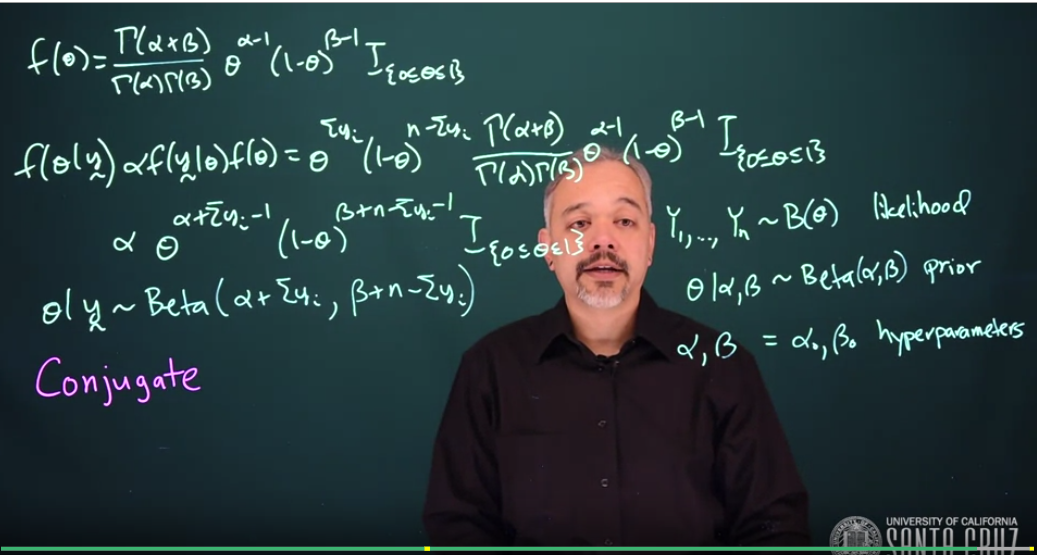 f(θ) = Γ(α+β) / Γ(α)Γ(β) θ^{α-1} (1-θ)^{β-1} I_{{0≤θ≤1}}
f(θ|y̰) ∝ f(y̰|θ)f(θ) = θ^{Σyᵢ} (1-θ)^{n-Σyᵢ} Γ(α+β) / Γ(α)Γ(β) θ^{α-1} (1-θ)^{β-1} I_{{0≤θ≤1}}
∝ θ^{α+Σyᵢ-1} (1-θ)^{β+n-Σyᵢ-1} I_{{0≤θ≤1}}
θ|y̰ ~ Beta(α+Σyᵢ, β+n-Σyᵢ)
Conjugate
Y₁,..., Yₙ ~ B(θ) likelihood
θ|α,β ~ Beta(α,β) prior
α,β = α₀,β₀ hyperparameters
UNIVERSITY OF CALIFORNIA
SANTA CRUZ